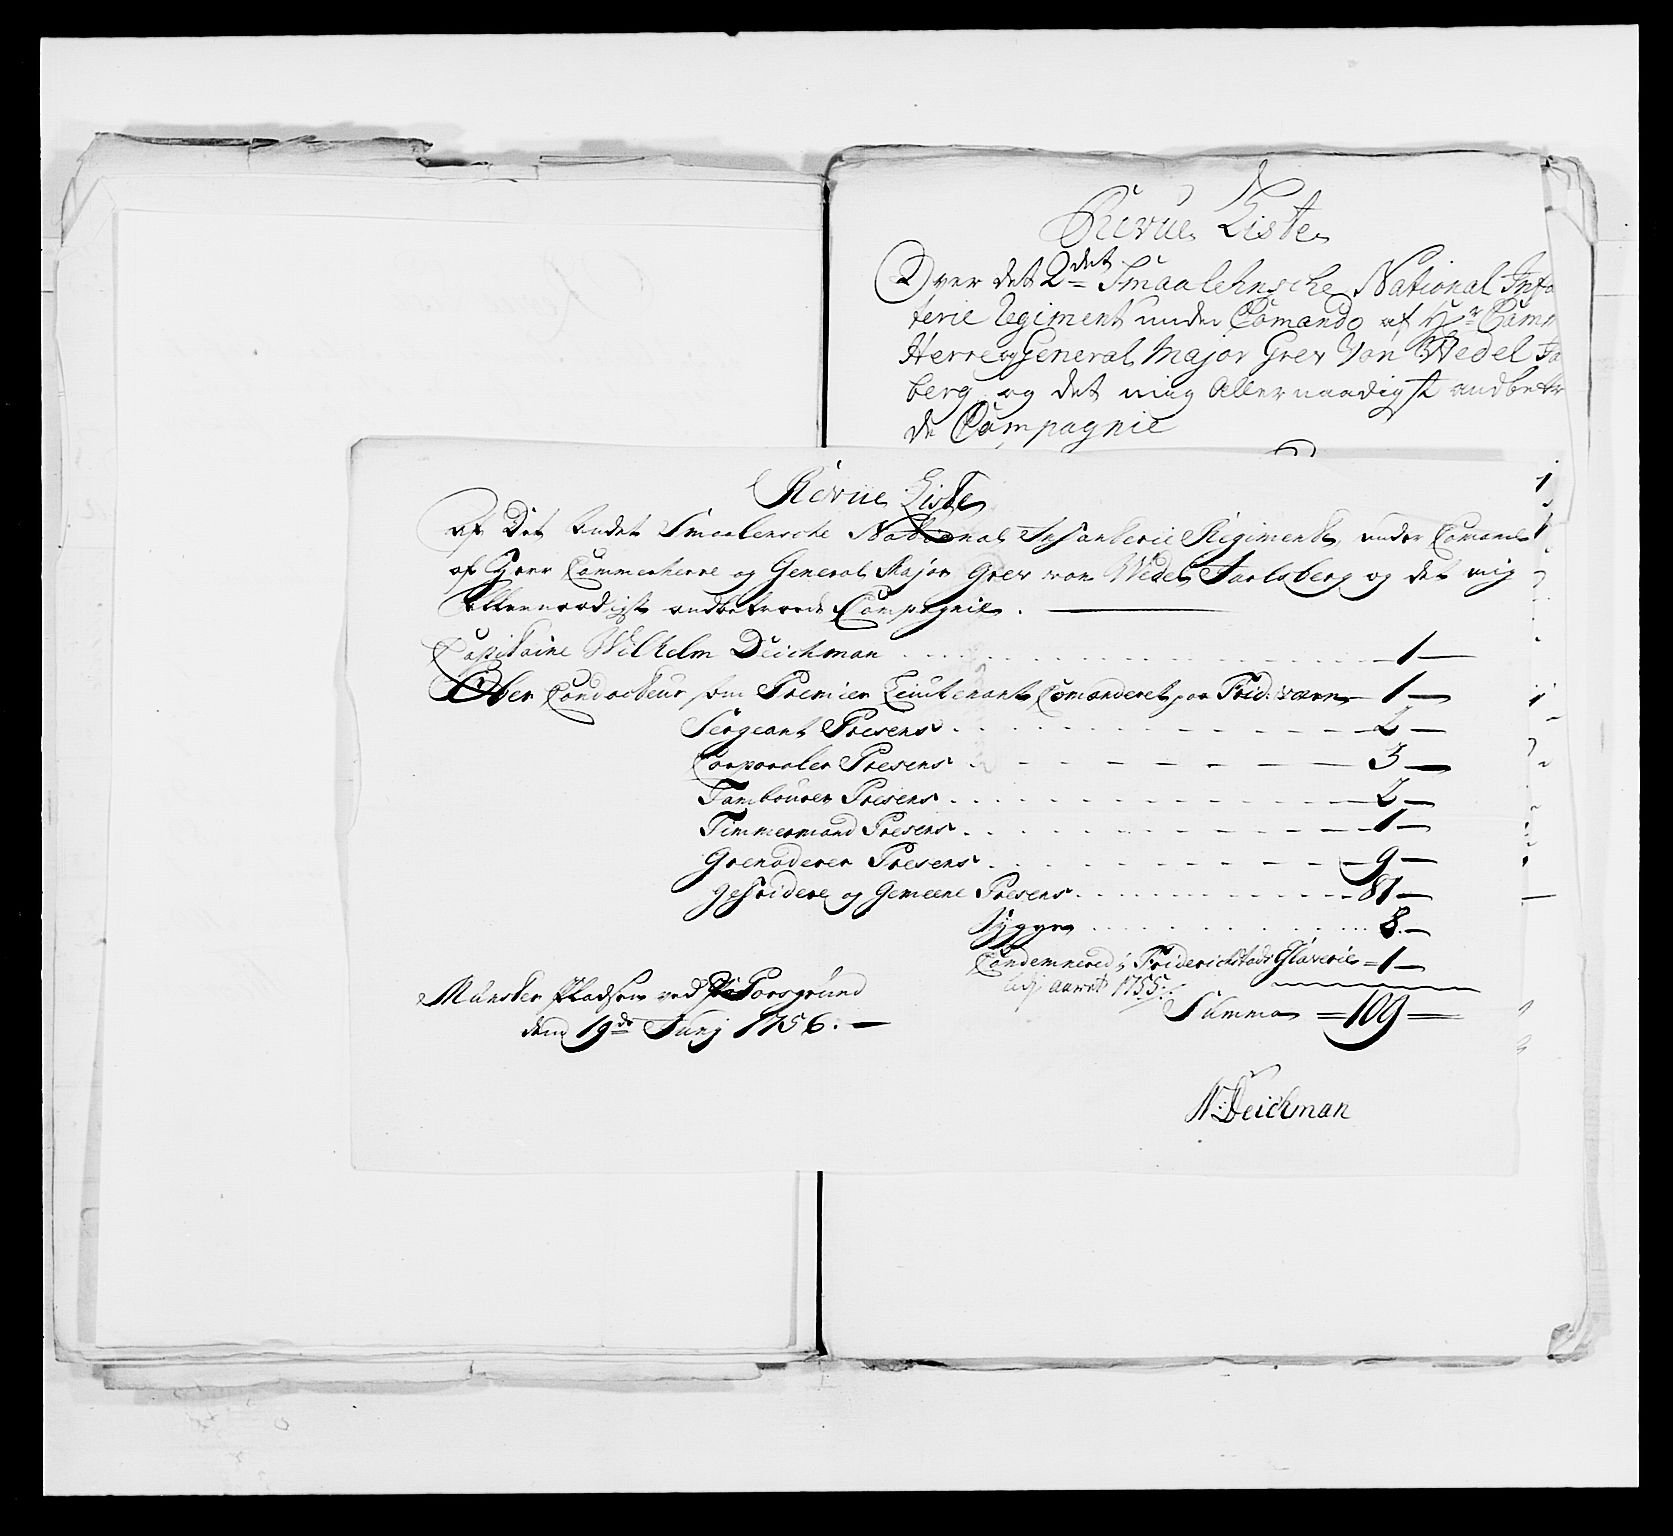 Revue Liste
Over det 2det Smaalehnsche National Infa
terie Regiment under Comando af Hr. Cam
Herre og General Major Grev Von Wedel Ja
berg og det mig Allernaadigst andbetr
de Compagnie
Revue Liste
af Det Andet Smaalensche National Infanterie Regiment, under Comando
af Herr Cammerherre og General Major Grev von Wedel Jarlsberg og det mig
Allernaadigst andbetroede Compagnie.
Capitaine Wilhelm Deichman 1
Ober Conducteur som Premier Lieutenant Comanderet paa Frid: værn 1
Sergeant Presens 2
Corporaler Presens 3
Tambourer Presens 2
Timmermand Presens 1
Grenaderer Presens 9
gefridere og Gemeene Presens 81
Sygge 8
Condemnered i Friderichstads Slaverie 1
udj aaret 1755
Mønster Pladsen ved Porsgrund
den 19de Junj 1756.
Summa 109
W: Deichman